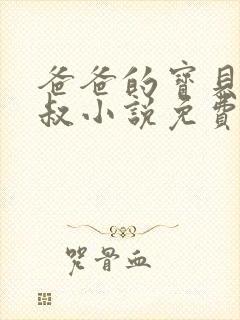 爸爸的寶見
叔小說免費
咒骨血